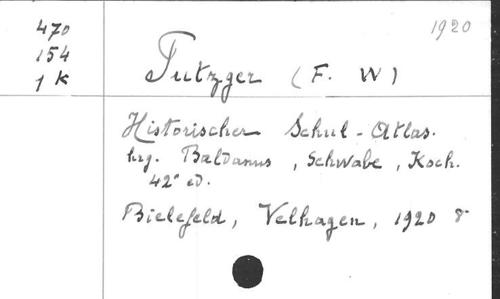 470
154
1 K
1920
Putzger (F. W)
Historischer Schul-Atlas.
hrg. Baldamus, Schwabe, Koch.
42ª ed.
Bielefeld, Velhagen, 1920 8